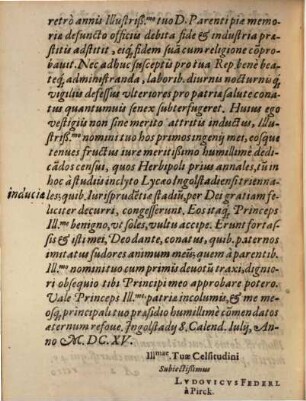 retrò annis Illustriß.mo tuo D. Parenti piæ memo-
riæ defuncto officiis debita fide & industria præ-
stitis adstitit, eiq; fidem suā cum religione cōpro-
bauit. Nec adhuc susceptis pro tua Rep. benè bea-
teq; administranda, laborib. diurnu nocturniq;
vigiliis defessus vlteriores pro patriæ salute cona-
tus quantumuis senex subterfugeret. Huius ego
vestigiū non sine merito attritis inductus, Illu-
striß.mo nomini tuo hos primos ingenij mei, eosque
tenues fructus iure meritissimo humillimè dedi-
cādos censui, quos Herbipoli prius annales, tū in
hoc à studiis inclyto Lycæo Ingolstadiensi triennа-
inducia
les; quib. Iurisprudētiæ stadiū, per Dei gratiam fe-
liciter decurri, congesserunt. Eos itaq; Princeps
Ill.me benigno, vt soles, vultu accipe. Erunt fortas-
sis & isti mei, Deo dante, conatus, quib. paternos
imitatus sudores animum meū; quem à parentib.
Ill.mo nomini tuo cum primis deuotū traxi, dignio-
ri obsequio tibi Principi meo approbare potero.
Vale Princeps Ill.me patriæ incolumis, & me me-
osq; principali tuo præsidio humillimè cōmendatos
æternum refoue. Ingolstadij 8. Calend. Iulij, An-
no M. DC. XV.
Illmæ. Tuæ Celsitudini
Subiectissimus
LVDOVICVS FEDERL
à Pirck.